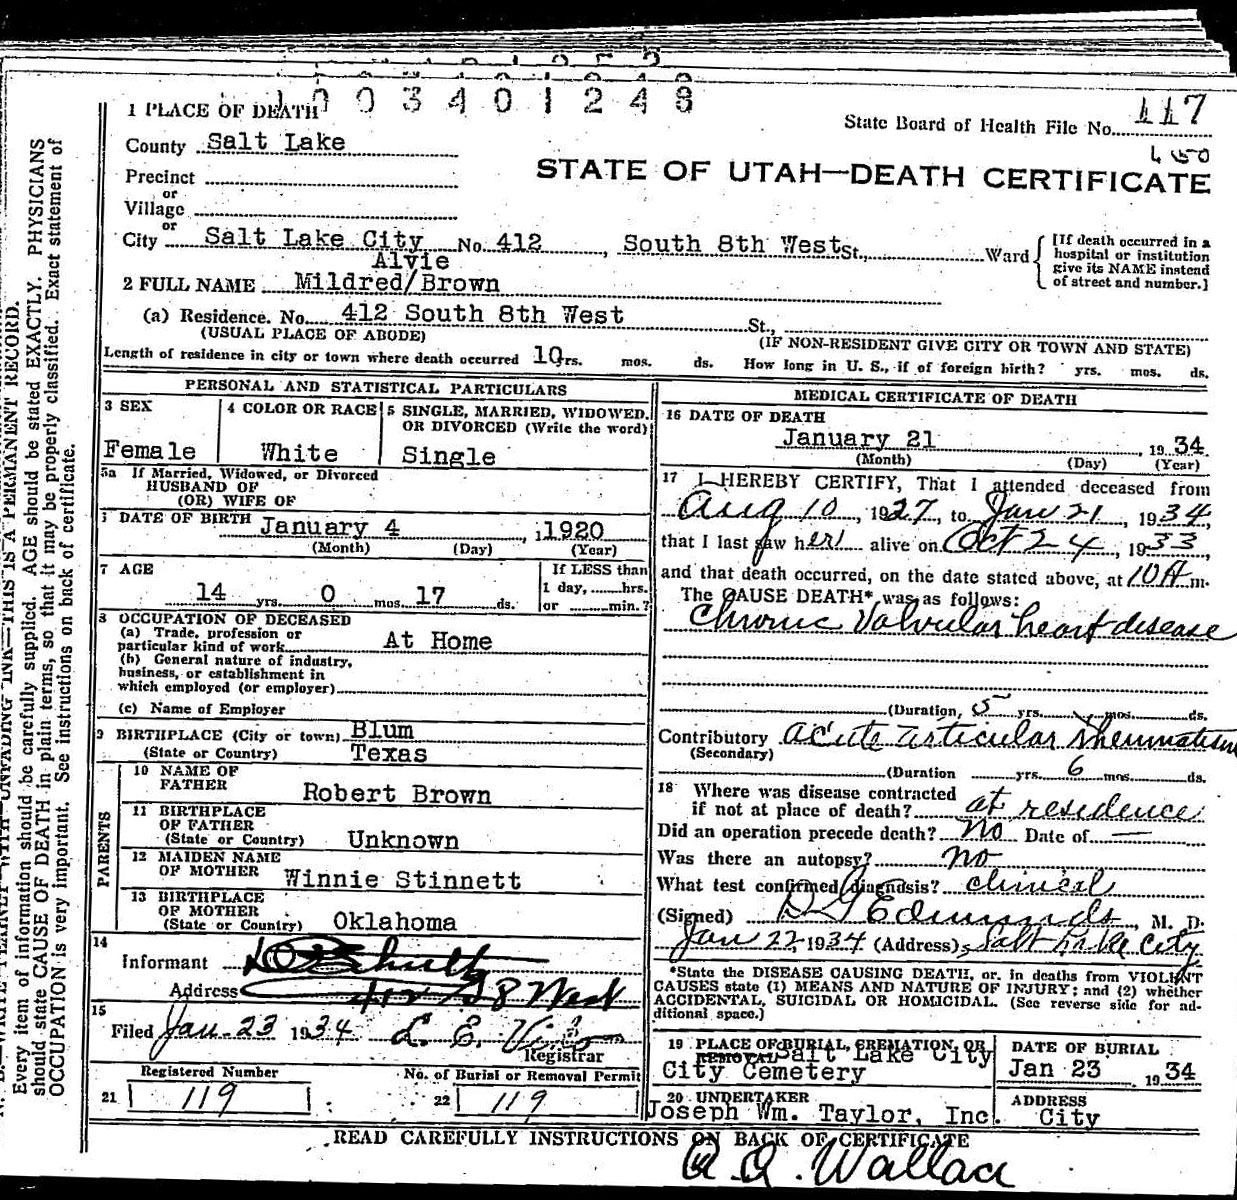 1003401248
1 PLACE OF DEATH
State Board of Health File No. 117
County Salt Lake
STATE OF UTAH—DEATH CERTIFICATE
Precinct
or
Village
or
City Salt Lake City No. 412, South 8th West St., Ward
[If death occurred in a
hospital or institution
give its NAME instead
of street and number.]
Alvie
2 FULL NAME Mildred/Brown
(a) Residence. No. 412 South 8th West St.,
(USUAL PLACE OF ABODE) (IF NON-RESIDENT GIVE CITY OR TOWN AND STATE)
Length of residence in city or town where death occurred 10 yrs. mos. ds. How long in U. S., if of foreign birth? yrs. mos. ds.
PERSONAL AND STATISTICAL PARTICULARS
3 SEX
Female
4 COLOR OR RACE
White
5 SINGLE, MARRIED, WIDOWED,
OR DIVORCED (Write the word)
Single
5a If Married, Widowed, or Divorced
HUSBAND OF
(OR) WIFE OF
DATE OF BIRTH January 4, 1920
(Month) (Day) (Year)
7 AGE
14 yrs. 0 mos. 17 ds.
If LESS than
1 day, hrs.
or min.?
8 OCCUPATION OF DECEASED
(a) Trade, profession or
particular kind of work At Home
(b) General nature of industry,
business, or establishment in
which employed (or employer)
(c) Name of Employer
9 BIRTHPLACE (City or town) Blum
(State or Country) Texas
PARENTS
10 NAME OF
FATHER Robert Brown
11 BIRTHPLACE
OF FATHER
(State or Country) Unknown
12 MAIDEN NAME
OF MOTHER Winnie Stinnett
13 BIRTHPLACE
OF MOTHER
(State or Country) Oklahoma
14
Informant
Address 412 S 8 West
15
Filed Jan. 23 1934 L. E.
Registrar
Registered Number
21 119
No. of Burial or Removal Permit
22 119
MEDICAL CERTIFICATE OF DEATH
16 DATE OF DEATH
January 21, 1934
(Month) (Day) (Year)
17 I HEREBY CERTIFY, That I attended deceased from
Aug 10, 1927, to Jan 21, 1934,
that I last saw her alive on Oct 24, 1933,
and that death occurred, on the date stated above, at 10 A m.
The CAUSE DEATH* was as follows:
Chronic Valvular heart disease
(Duration, 5 yrs. mos. ds.
Contributory acute articular rheumatism
(Secondary)
(Duration yrs. 6 mos. ds.
18 Where was disease contracted
if not at place of death? at residence
Did an operation precede death? No Date of —
Was there an autopsy? no
What test confirmed diagnosis? clinical
(Signed) D G Edmunds, M. D.
Jan 22 1934 (Address) Salt Lake City
*State the DISEASE CAUSING DEATH, or, in deaths from VIOLENT
CAUSES state (1) MEANS AND NATURE OF INJURY; and (2) whether
ACCIDENTAL, SUICIDAL OR HOMICIDAL. (See reverse side for ad-
ditional space.)
19 PLACE OF BURIAL, CREMATION, OR
REMOVAL Salt Lake City
City Cemetery
DATE OF BURIAL
Jan 23, 1934
20 UNDERTAKER
Joseph Wm. Taylor, Inc.
ADDRESS
City
READ CAREFULLY INSTRUCTIONS ON BACK OF CERTIFICATE
Q. Q. Wallace
Every item of information should be carefully supplied. AGE should be stated EXACTLY. PHYSICIANS
should state CAUSE OF DEATH in plain terms, so that it may be properly classified. Exact statement of
OCCUPATION is very important. See instructions on back of certificate.